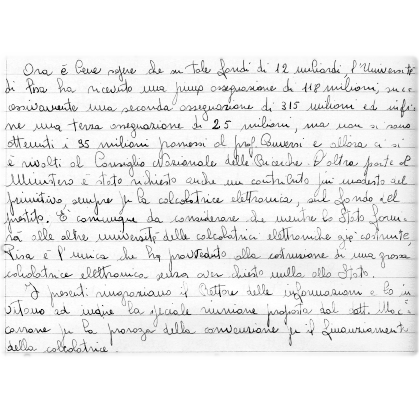 Ora è bene sapere che su tale fondi di 12 miliardi, l'Università
di Pisa ha ricevuto una prima assegnazione di 118 milioni, succ
essivamente una seconda assegnazione di 315 milioni ed infi
ne una terza assegnazione di 25 milioni, ma non si sono
ottenuti i 35 milioni promessi al prof. Conversi e allora ci si
è rivolti al Consiglio Nazionale delle Ricerche. D'altra parte al
Ministero è stato richiesto anche un contributo più modesto del
primitivo, sempre per la calcolatrice elettronica, sul fondo del
partito. È comunque da considerare che mentre lo Stato forni
rà alle altre università delle calcolatrici elettroniche già costruite,
Pisa è l'unica che ha provveduto alla costruzione di una grossa
calcolatrice elettronica senza aver chiesto nulla allo Stato.
I presenti ringraziano il Rettore delle informazioni e lo in
vitano ad indire la speciale riunione proposta dal dott. Mac
carrone per la proroga della convenzione per il finanziamento
della calcolatrice.